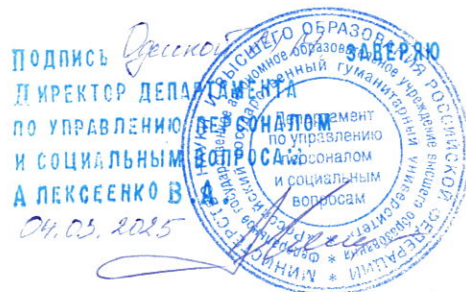 Подпись Одинокой ЗАВЕРЯЮ
ДИРЕКТОР ДЕПАРТАМЕНТА
ПО УПРАВЛЕНИЮ ПЕРСОНАЛОМ
И СОЦИАЛЬНЫМ ВОПРОСАМ
АЛЕКСЕЕНКО В.А.
04.03.2025
МИНИСТЕРСТВО НАУКИ И ВЫСШЕГО ОБРАЗОВАНИЯ РОССИЙСКОЙ ФЕДЕРАЦИИ *
Федеральное государственное автономное образовательное учреждение высшего образования *
государственный гуманитарный университет
Департамент
по управлению
персоналом
и социальным
вопросам